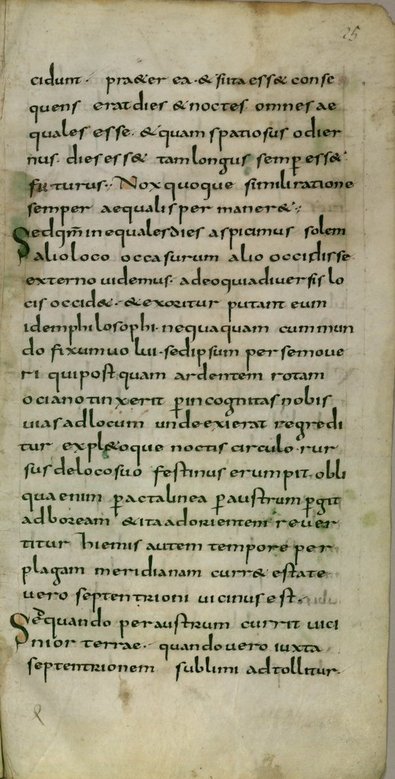 25
cidunt. praeter ea. & si ita ess& conse
quens erat dies & noctes omnes ae
quales esse. & quam spatiosus odier
nus. dies ess& tam longus semp̲ ess&
futurus. Nox quoque simili ratione
semper aequalis per maner&.
Sed qm̄ inequales dies aspicimus solem
alio loco occasurum alio occidisse
externo uidemus. adeo quia diuersis lo
cis occid&. & exoritur putant eum
idem philosophi. nequaquam cum mun
do fixum uolui. sed ipsum per se moue
ri qui post quam ardentem rotam
ociano tinxerit p̲ incognitas nobis
uias ad locum unde exierat regredi
tur expl&oque noctis circulo. rur
sus de loco suo festinus erumpit. obli
qua enim p̲acta linea p̲ austrum p̲git
ad boream & ita ad orientem reuer
titur hiemis autem tempore per
plagam meridianam curr& estate
uero septentrioni uicinus est.
Sed quando per austrum currit uici
nior terrae. quando uero iuxta
septentrionem sublimi ad tollitur.